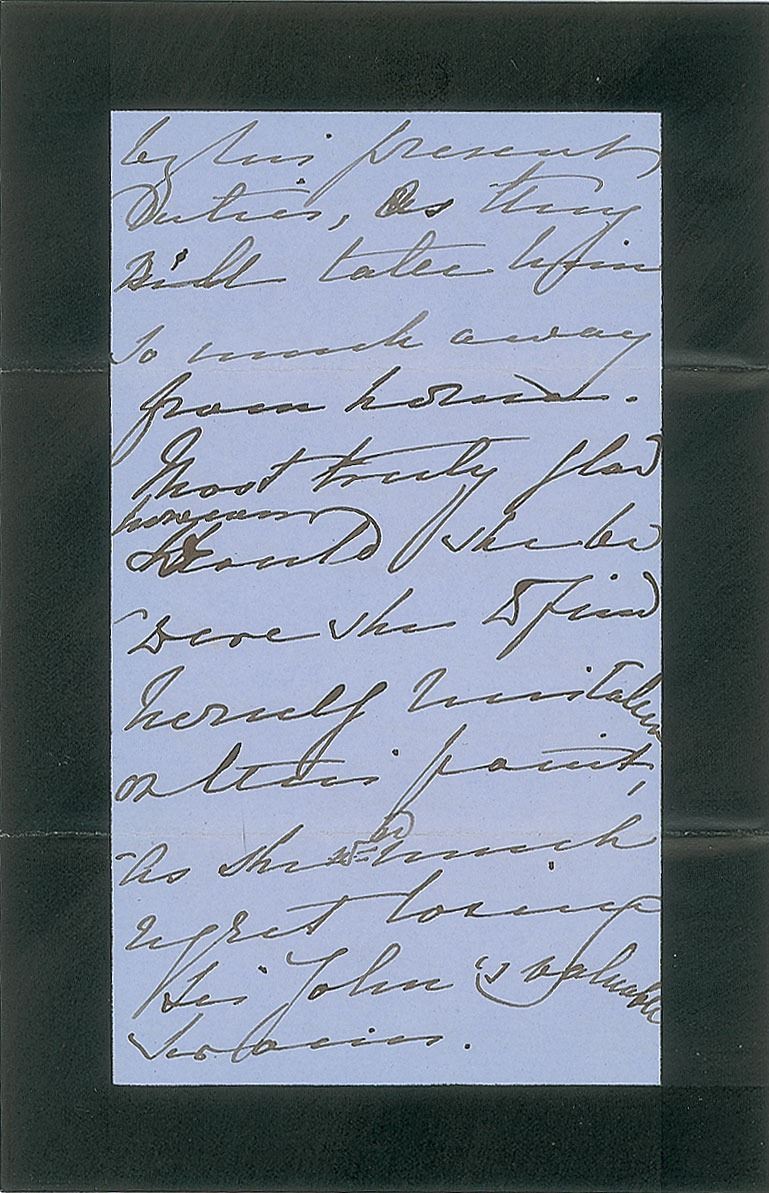 by his present
Duties, as they
Will take him
so much away
from home.
Most truly glad
however
Should she be
were she to find
herself mistaken
on this point,
as she wd much
regret losing
Sir John's valuable
services.